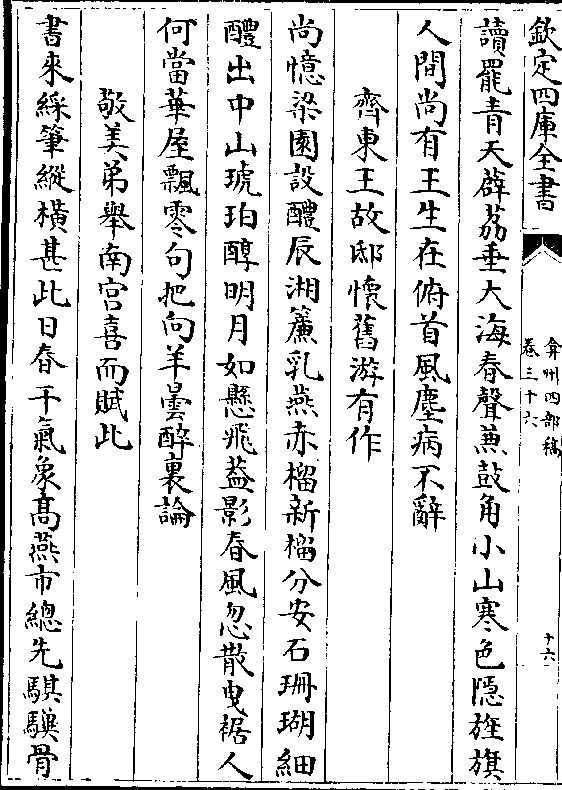 欽定四庫全書
弇州四部稿
卷三十六
十六
讀罷青天薜荔垂大海春聲兼鼓角小山寒色隱旌旗
人間尚有王生在俯首風塵病不辭
齊東王故邸懷舊游有作
尚憶梁園設醴辰湘簾乳燕赤榴新榴分安石珊瑚細
醴出中山琥珀醇明月如懸飛葢影春風忽散曳裾人
何當華屋飄零句把向羊曇醉裏論
敬美弟舉南宫喜而賦此
書來綵筆縱橫甚此日春干氣象髙燕市總先騏驥骨